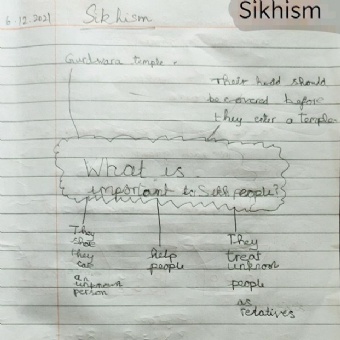 Sikhism
6.12.2021
Sikhism
Gurdwara temple.
Their head should
be covered before
they enter a temple
What is
important to Sikh people?
They
they
an
unknown
person
help
people
They
treat
unknown
people
as
relatives